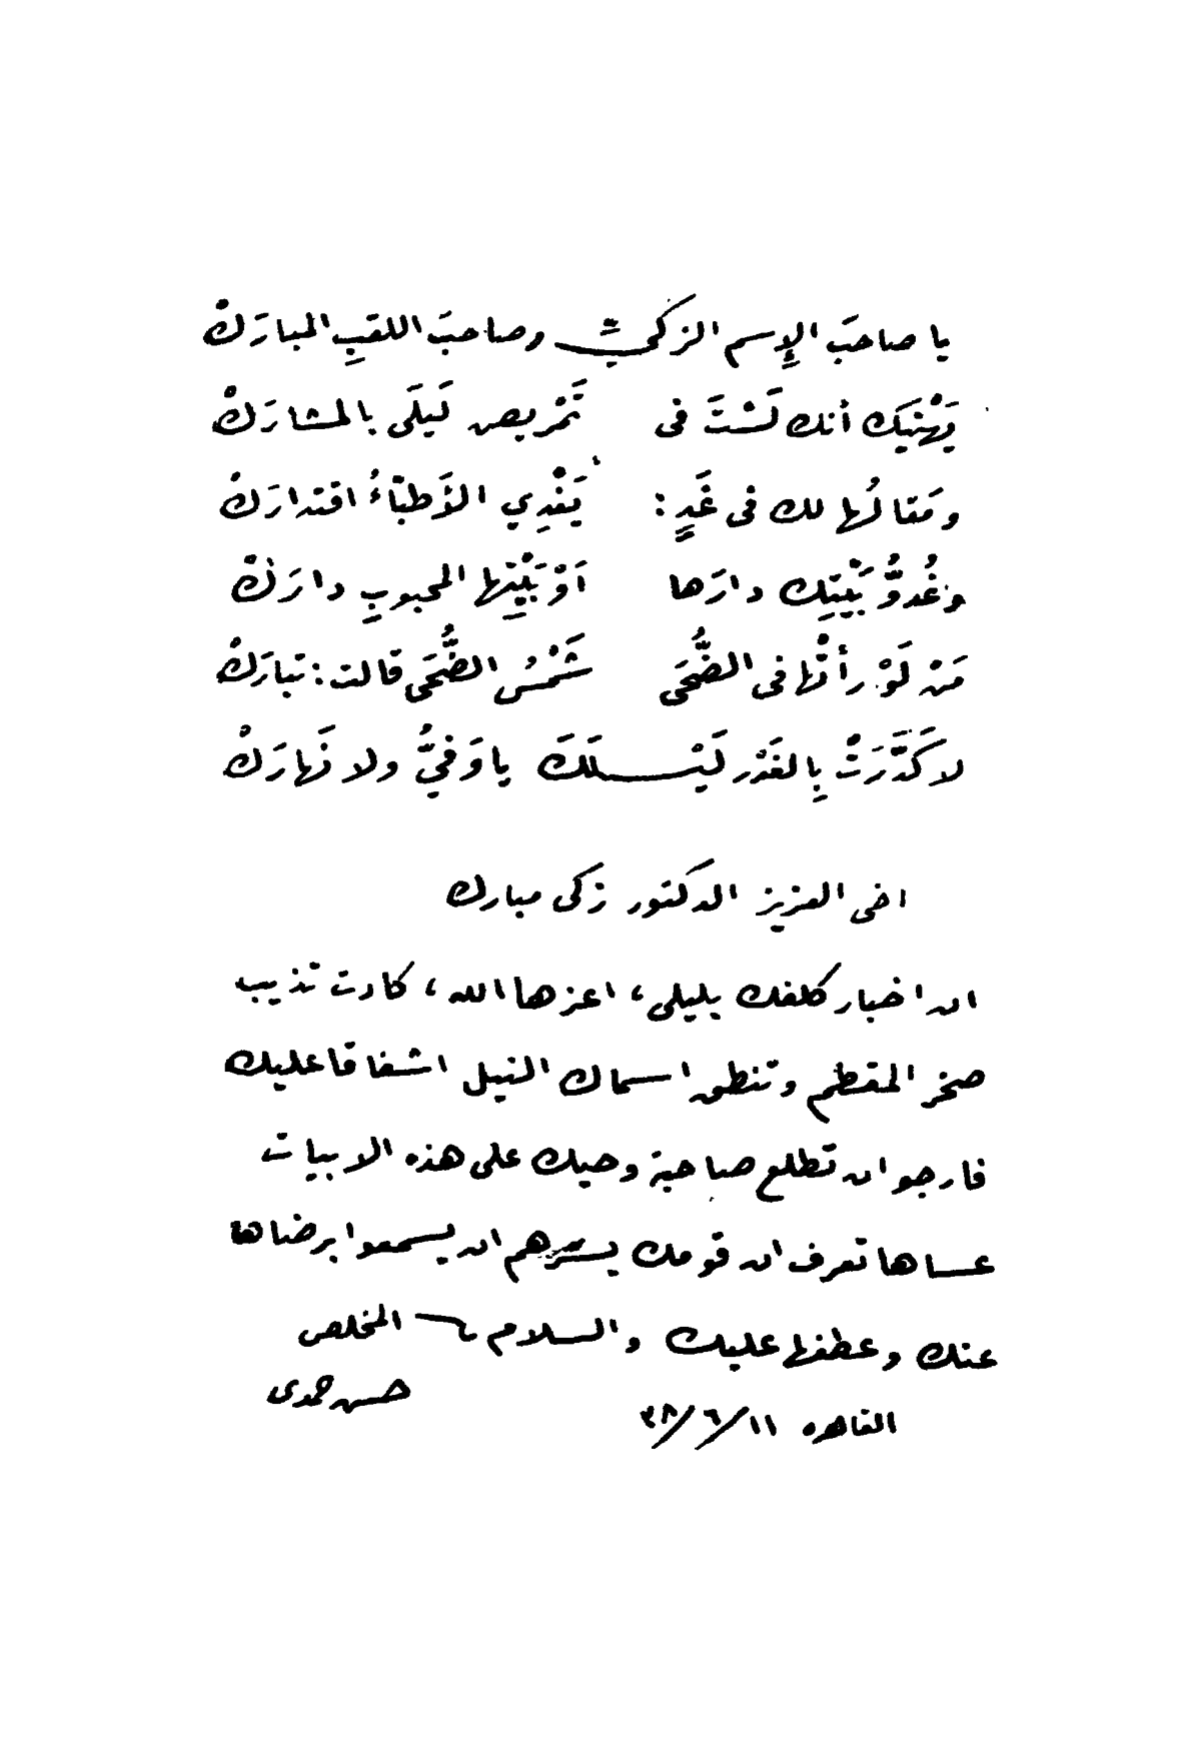 يا صاحبَ الإِسم الزكيّ وصاحبَ اللقبِ المبارَكْ
يَهْنيَك أنك لَسْتَ فى تَمْريض لَيلَى بالمشارَكْ
ومَقالُها لك فى غَدٍ: يَفْدِي الأَطبّاءُ اقتدارَكْ
وغُدوُّ بَيْتِك دارَها اَوْ بَيْتِها المحبوبِ دارَكْ
مَنْ لَوْ رأتْها فى الضُّحَى شَمْسُ الضُّحَى قالت: تبارَكْ
لا كَدَّرَتْ بِالغَدْر لَيْـلَكَ يا وَفيُّ ولا نَهارَكْ
اخى العزيز الدكتور زكى مبارك
ان اخبار كلفك بليلى، اعزها الله، كادت تذيب
صخر المقطم وتنطق اسماك النيل اشفاقا عليك
فارجو ان تطلع صاحبة وحيك على هذه الابيات
عساها تعرف ان قومك يسرهم ان يسمعوا برضاها
عنك وعطفها عليك والسلام المخلص
حسن حمدى
القاهره ١١/٦/٣٨